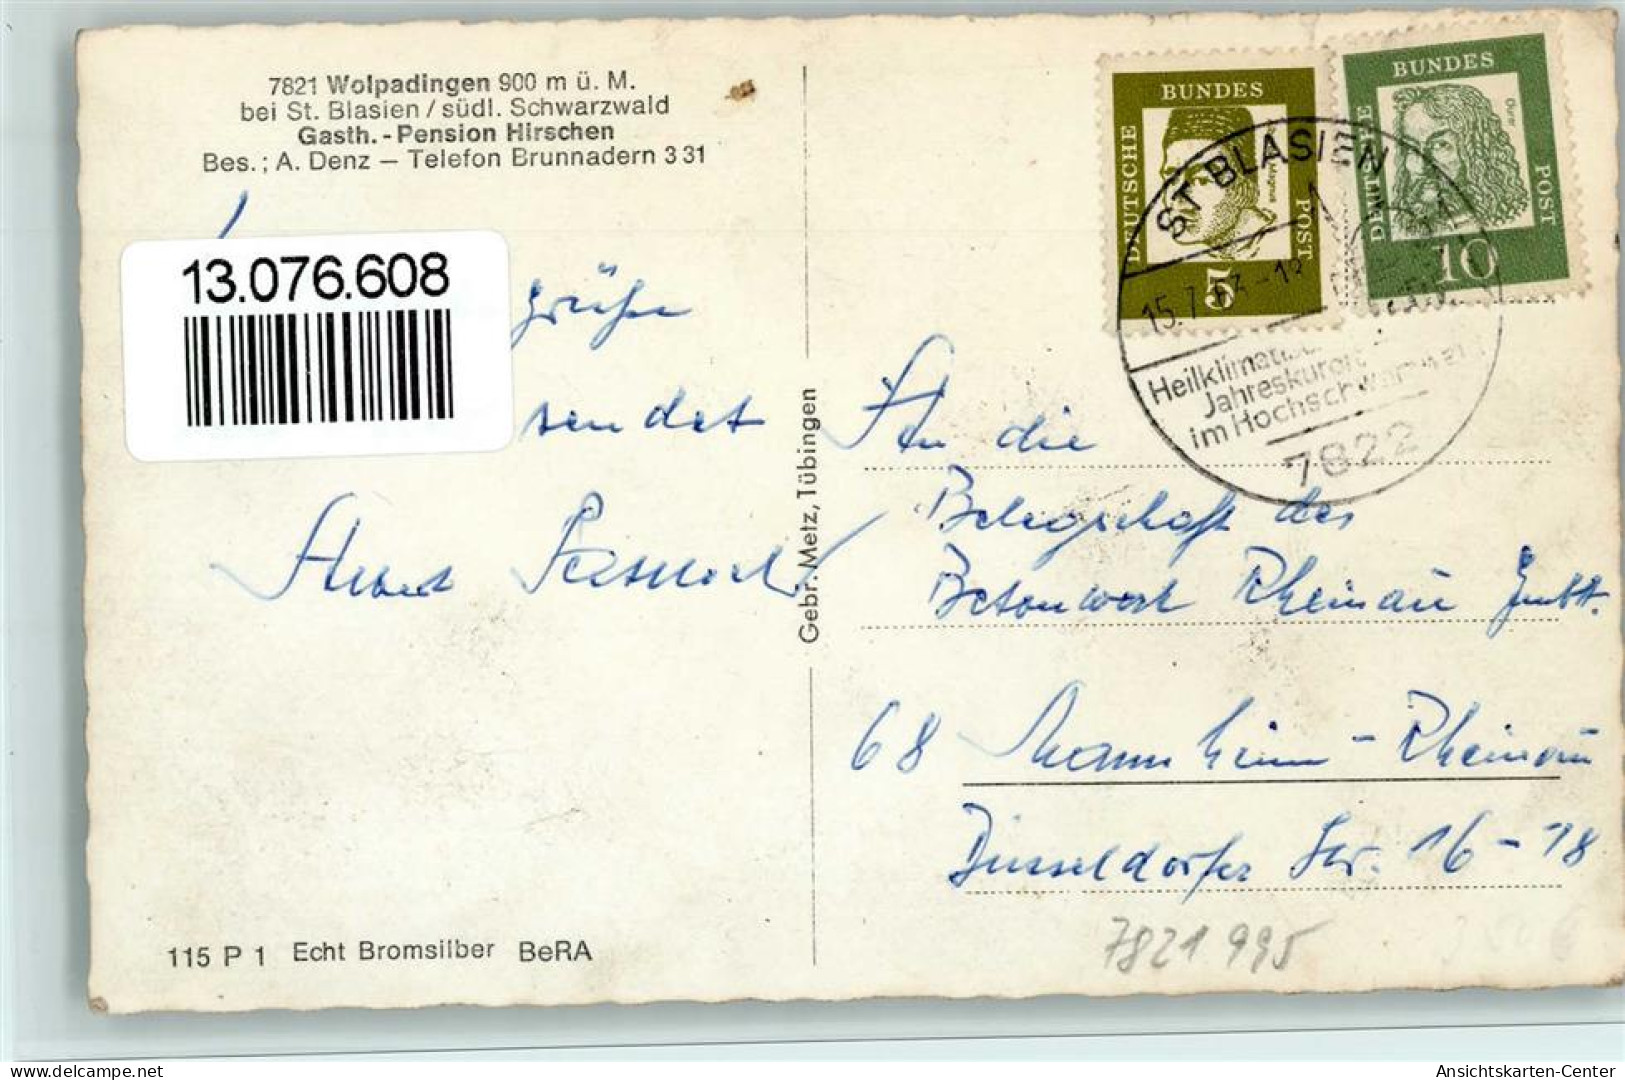 7821 Wolpadingen 900 m ü. M.
bei St. Blasien / südl. Schwarzwald
Gasth. - Pension Hirschen
Bes.; A. Denz – Telefon Brunnadern 3 31
13.076.608
grüße
sendet
Gebr. Metz, Tübingen
DEUTSCHE BUNDES POST
5
DEUTSCHE BUNDES POST
Dürer
10
ST BLASIEN
15.7.
Heilklimatischer
Jahreskurort
im Hochschwarzwald
7822
An die
Belegschaft des
Betonwerk Rheinau GmbH.
68 Mannheim-Rheinau
Düsseldorfer Str. 16-18
7821 995
115 P 1 Echt Bromsilber BeRA
Ansichtskarten-Center